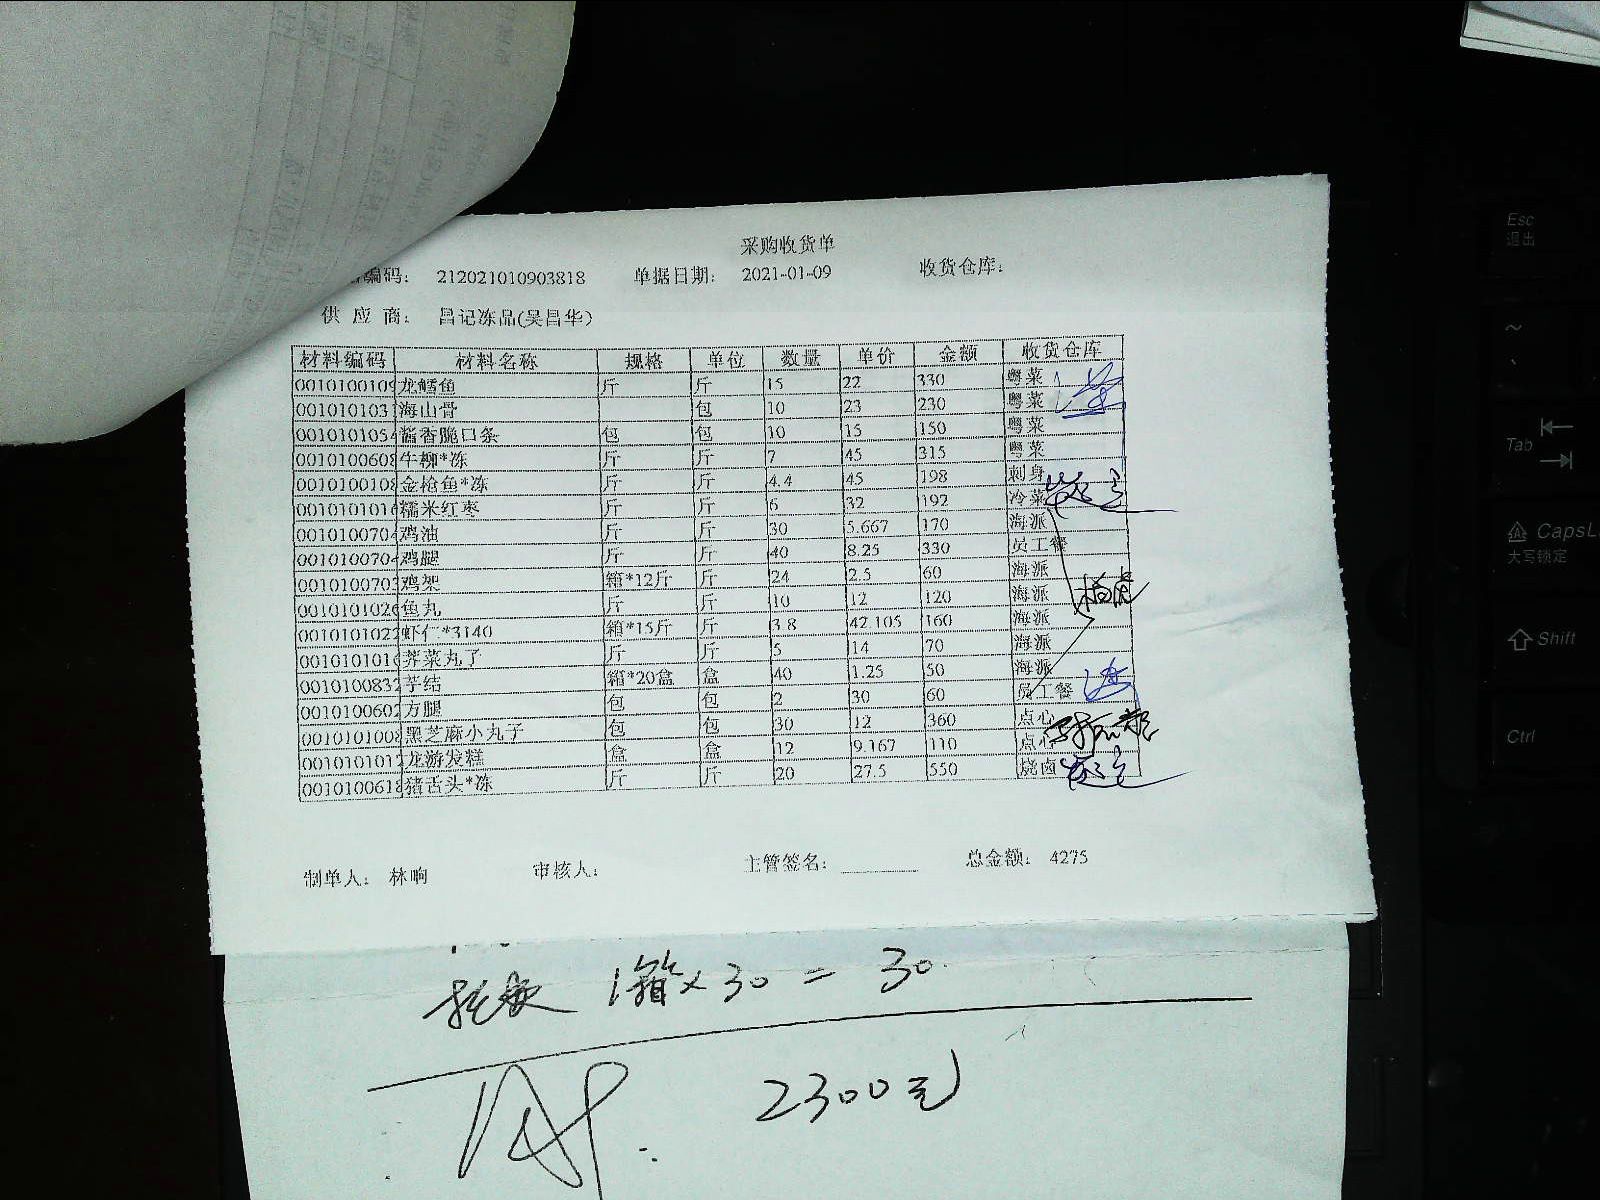 采购收货单
编码： 212021010903818 单据日期： 2021-01-09 收货仓库：
供 应 商： 昌记冻品(吴昌华)
材料编码 材料名称 规格 单位 数量 单价 金额 收货仓库
0010100109 龙鳕鱼 斤 斤 15 22 330 粤菜
001010103 海山骨 包 10 23 230 粤菜
0010101054 酱香脆口条 包 包 10 15 150 粤菜
0010100608 牛柳*冻 斤 斤 7 45 315 粤菜
0010100108 金枪鱼*冻 斤 斤 4.4 45 198 刺身
0010101016 糯米红枣 斤 斤 6 32 192 冷菜
0010100704 鸡油 斤 斤 30 5.667 170 海派
0010100704 鸡腿 斤 斤 40 8.25 330 员工餐
0010100703 鸡架 箱*12斤 斤 24 2.5 60 海派
0010101026 鱼丸 斤 斤 10 12 120 海派
0010101022 虾仁*3140 箱*15斤 斤 3.8 42.105 160 海派
0010101016 荠菜丸子 斤 斤 5 14 70 海派
0010100832 芋结 箱*20盒 盒 40 1.25 50 海派
0010100602 方腿 包 包 2 30 60 员工餐
0010101008 黑芝麻小丸子 包 包 30 12 360 点心
0010101012 龙游发糕 盒 盒 12 9.167 110 点心
0010100618 猪舌头*冻 斤 斤 20 27.5 550 烧卤
制单人： 林响 审核人： 主管签名： 总金额： 4275
1箱×30=30
2300元
Esc
退出
~
Tab
CapsL
大写锁定
Shift
Ctrl